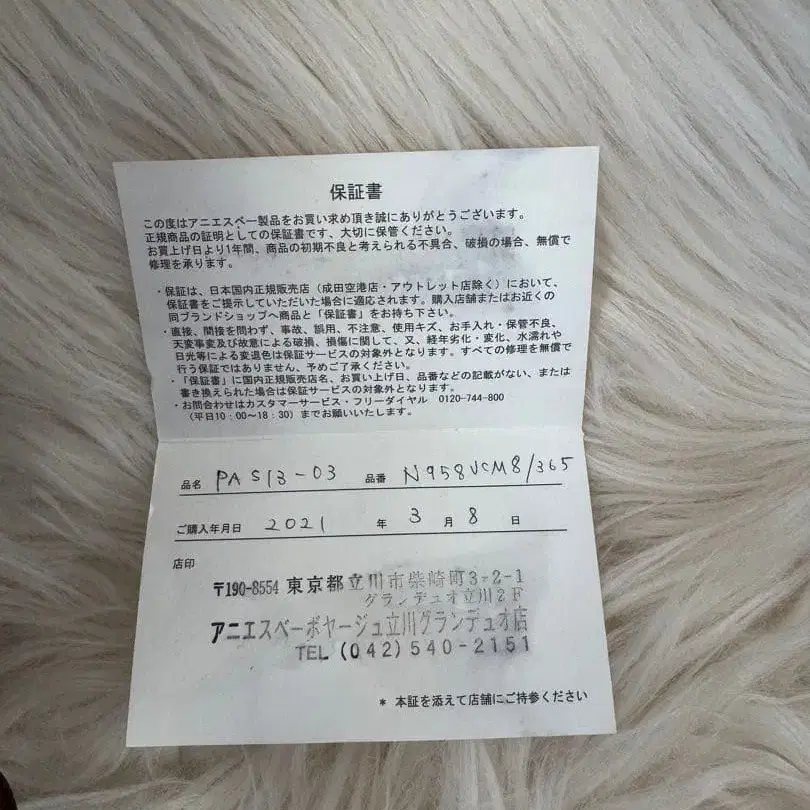 保証書
この度はアニエスベー製品をお買い求め頂き誠にありがとうございます。
正規商品の証明としての保証書です、大切に保管ください。
お買上げ日より1年間、商品の初期不良と考えられる不具合、破損の場合、無償で
修理を承ります。
・保証は、日本国内正規販売店（成田空港店・アウトレット店除く）において、
保証書をご提示していただいた場合に適応されます。購入店舗またはお近くの
同ブランドショップへ商品と「保証書」をお持ち下さい。
・直接、間接を問わず、事故、誤用、不注意、使用キズ、お手入れ・保管不良、
天変事変及び故意による破損、損傷に関して、又、経年劣化・変化、水濡れや
日光等による変退色は保証サービスの対象外となります。すべての修理を無償で
行う保証ではありません、予めご了承ください。
・「保証書」に国内正規販売店名、お買い上げ日、品番などの記載がない、または
書き換えられた場合は保証サービスの対象外となります。
・お問合わせはカスタマーサービス・フリーダイヤル 0120-744-800
（平日10：00〜18：30）までお願いいたします。
品名 PAS13-03 品番 N958VCM8/365
ご購入年月日 2021 年 3 月 8 日
店印
〒190-8554 東京都立川市柴崎町3-2-1
グランデュオ立川2F
アニエスベーボヤージュ立川グランデュオ店
TEL (042)540-2151
* 本証を添えて店舗にご持参ください